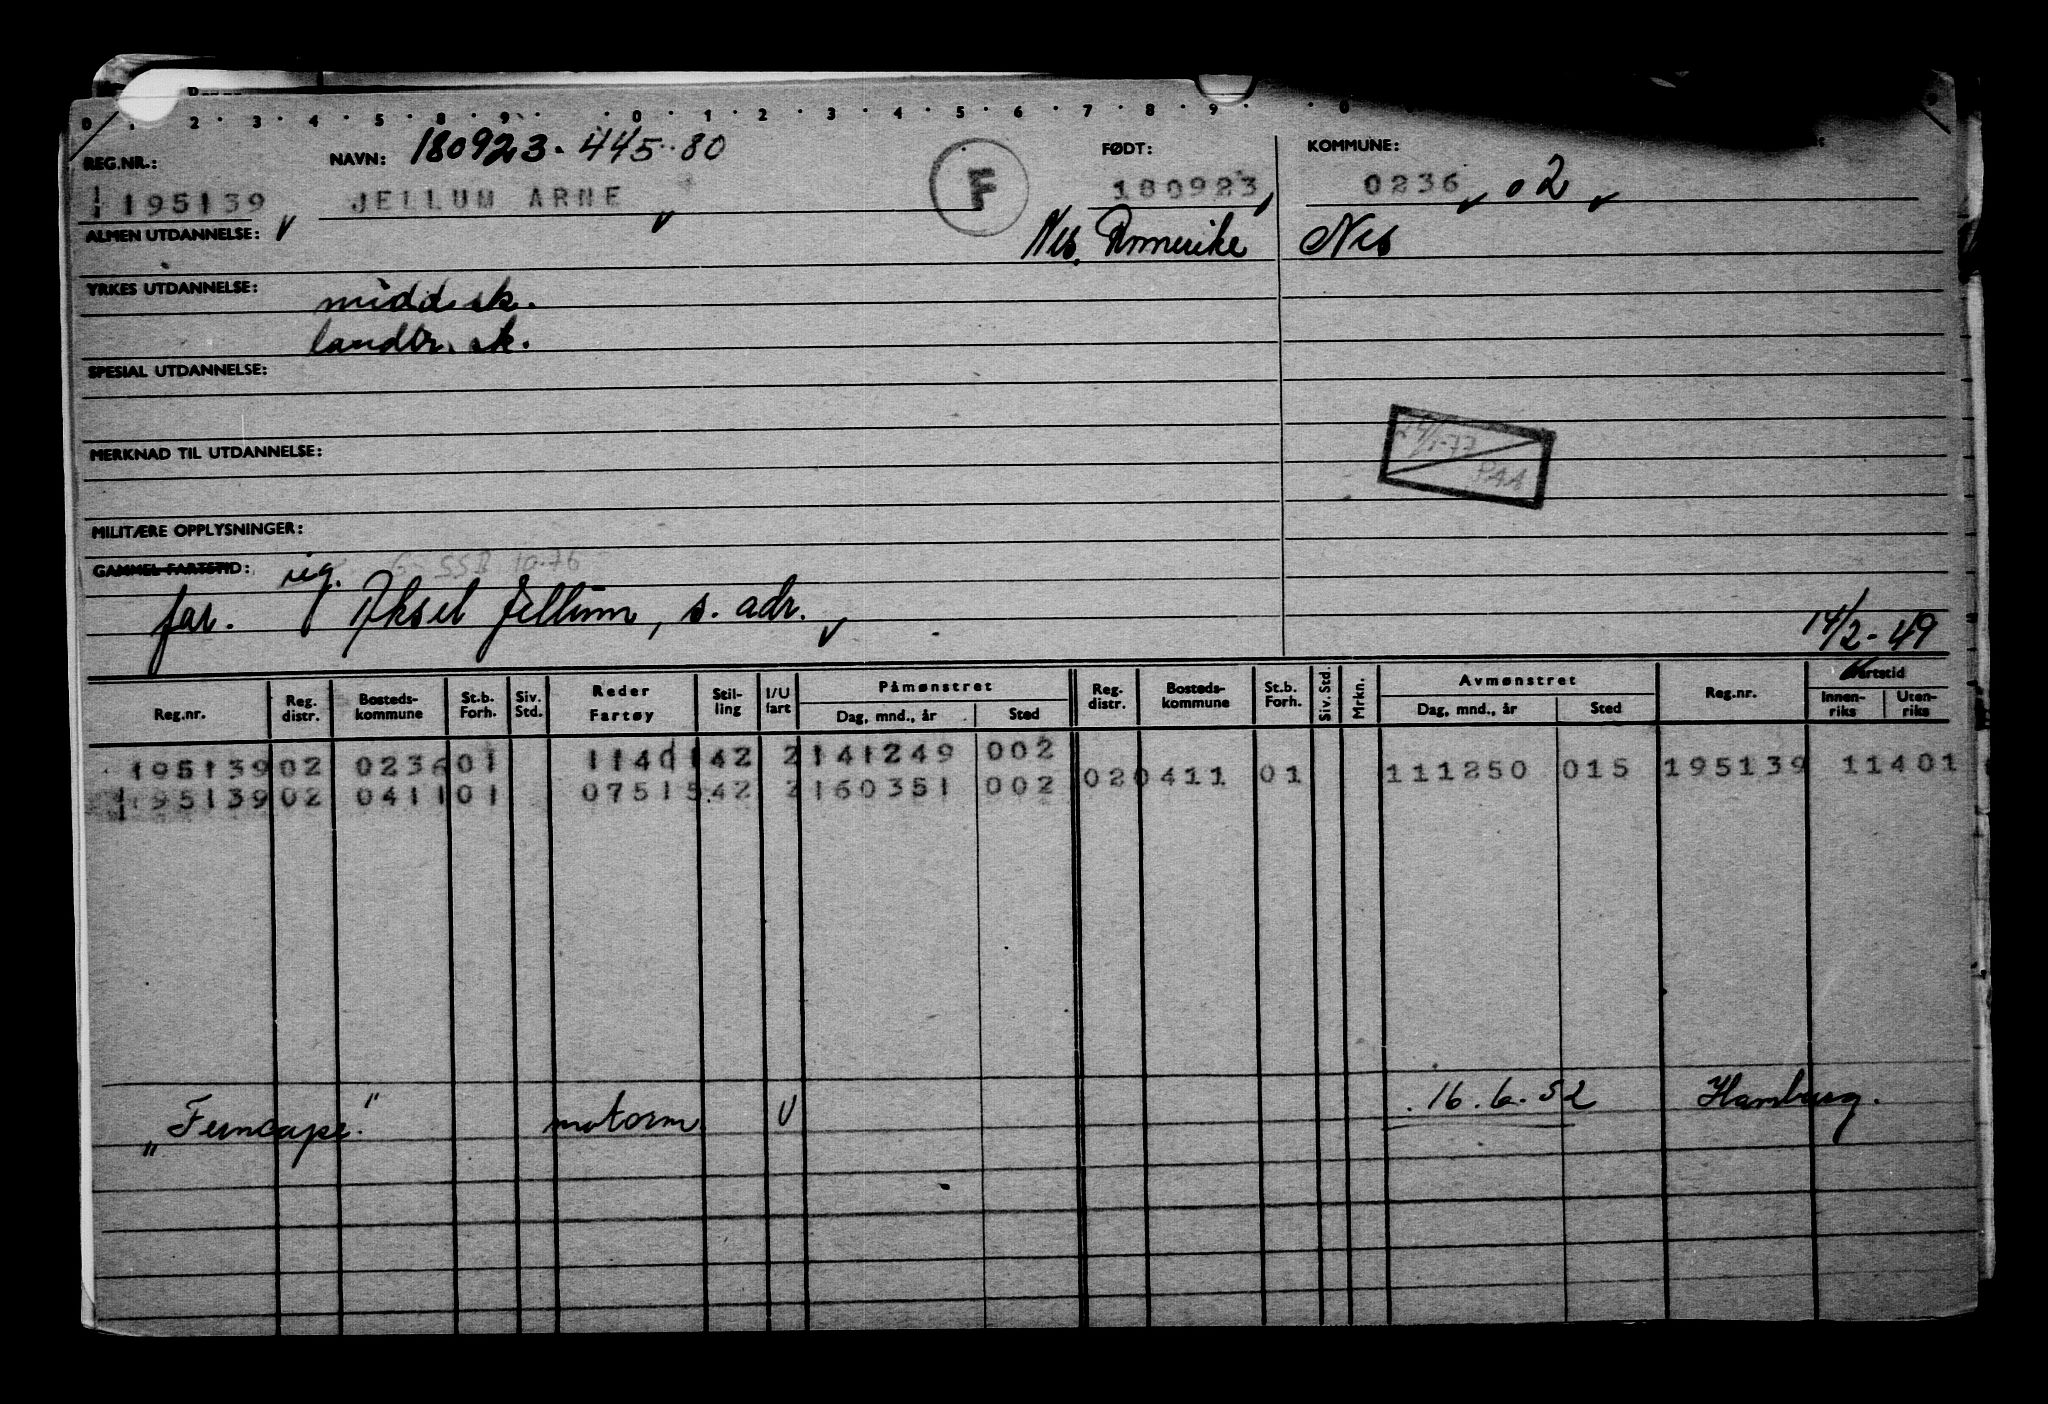 0 1 2 3 4 5 8 9 0 1 2 3 4 5 6 7 8 9 0
REG.NR.: NAVN: 180923-445-80 FØDT: KOMMUNE:
1/1 195139 JELLUM ARNE F 180923 0236 02
ALMEN UTDANNELSE: Nes, Romerike Nes
YRKES UTDANNELSE: midd.sk.
landbr. sk.
SPESIAL UTDANNELSE:
1-77
PAA
MERKNAD TIL UTDANNELSE:
MILITÆRE OPPLYSNINGER:
GAMMEL FARTSTID: reg. 10-76
far. Aksel Jellum, s. adr. 14/2-49
Reg.nr. Reg. distr. Bosteds-kommune St.b. Forh. Siv. Std. Reder Fartøy Stil-ling I/U fart Påmønstret Dag, mnd., år Sted Reg. distr. Bosteds-kommune St.b. Forh. Siv. Std. Mrkn. Avmønstret Dag, mnd., år Sted Reg.nr. Fartstid Innen-riks Uten-riks
195139 02 0236 01 11401 42 2 141249 002 02 0411 01 111250 015 195139 11401
195139 02 0411 01 07515 42 2 160351 002
"Ferncape" motorm. U 16.6.52 Hamburg.